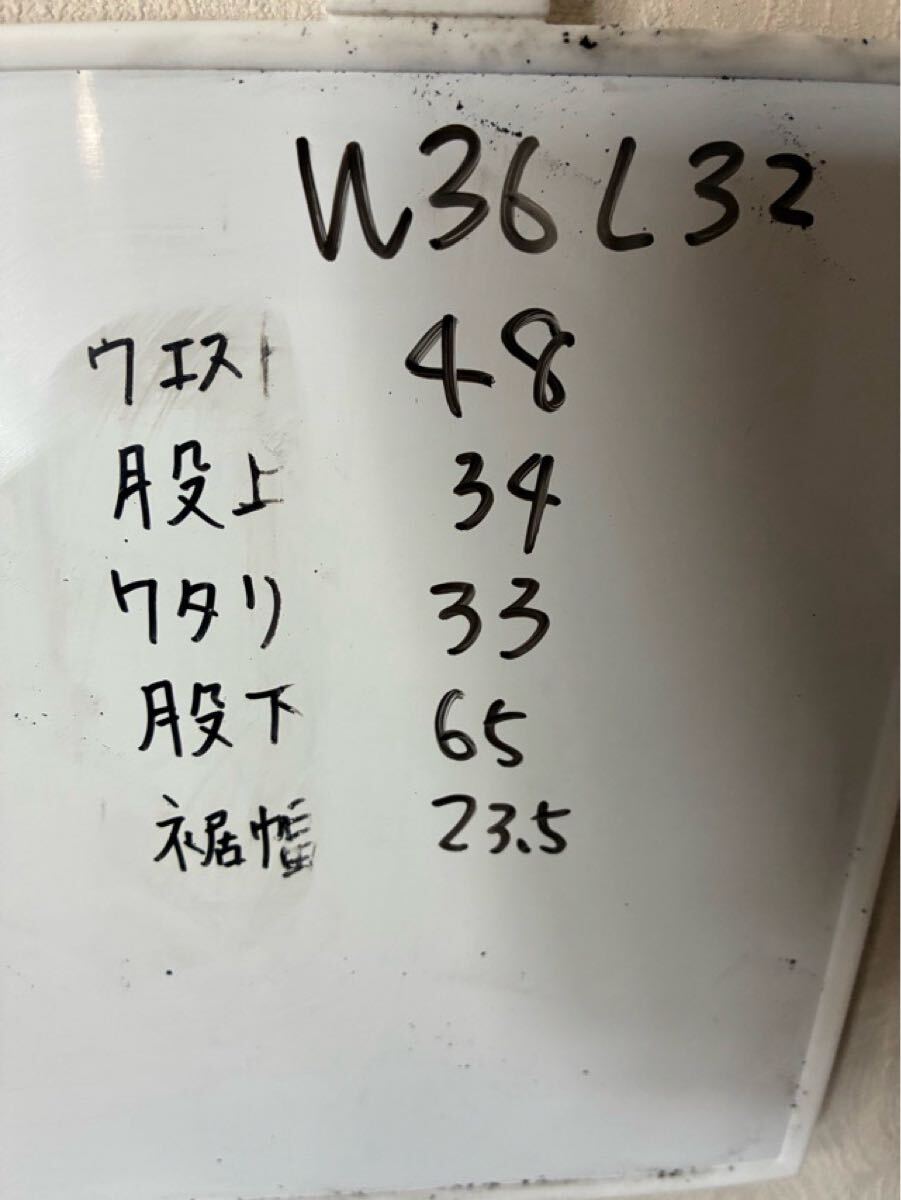 W36 L32
ウエスト 48
股上 34
ワタリ 33
股下 65
裾幅 23.5